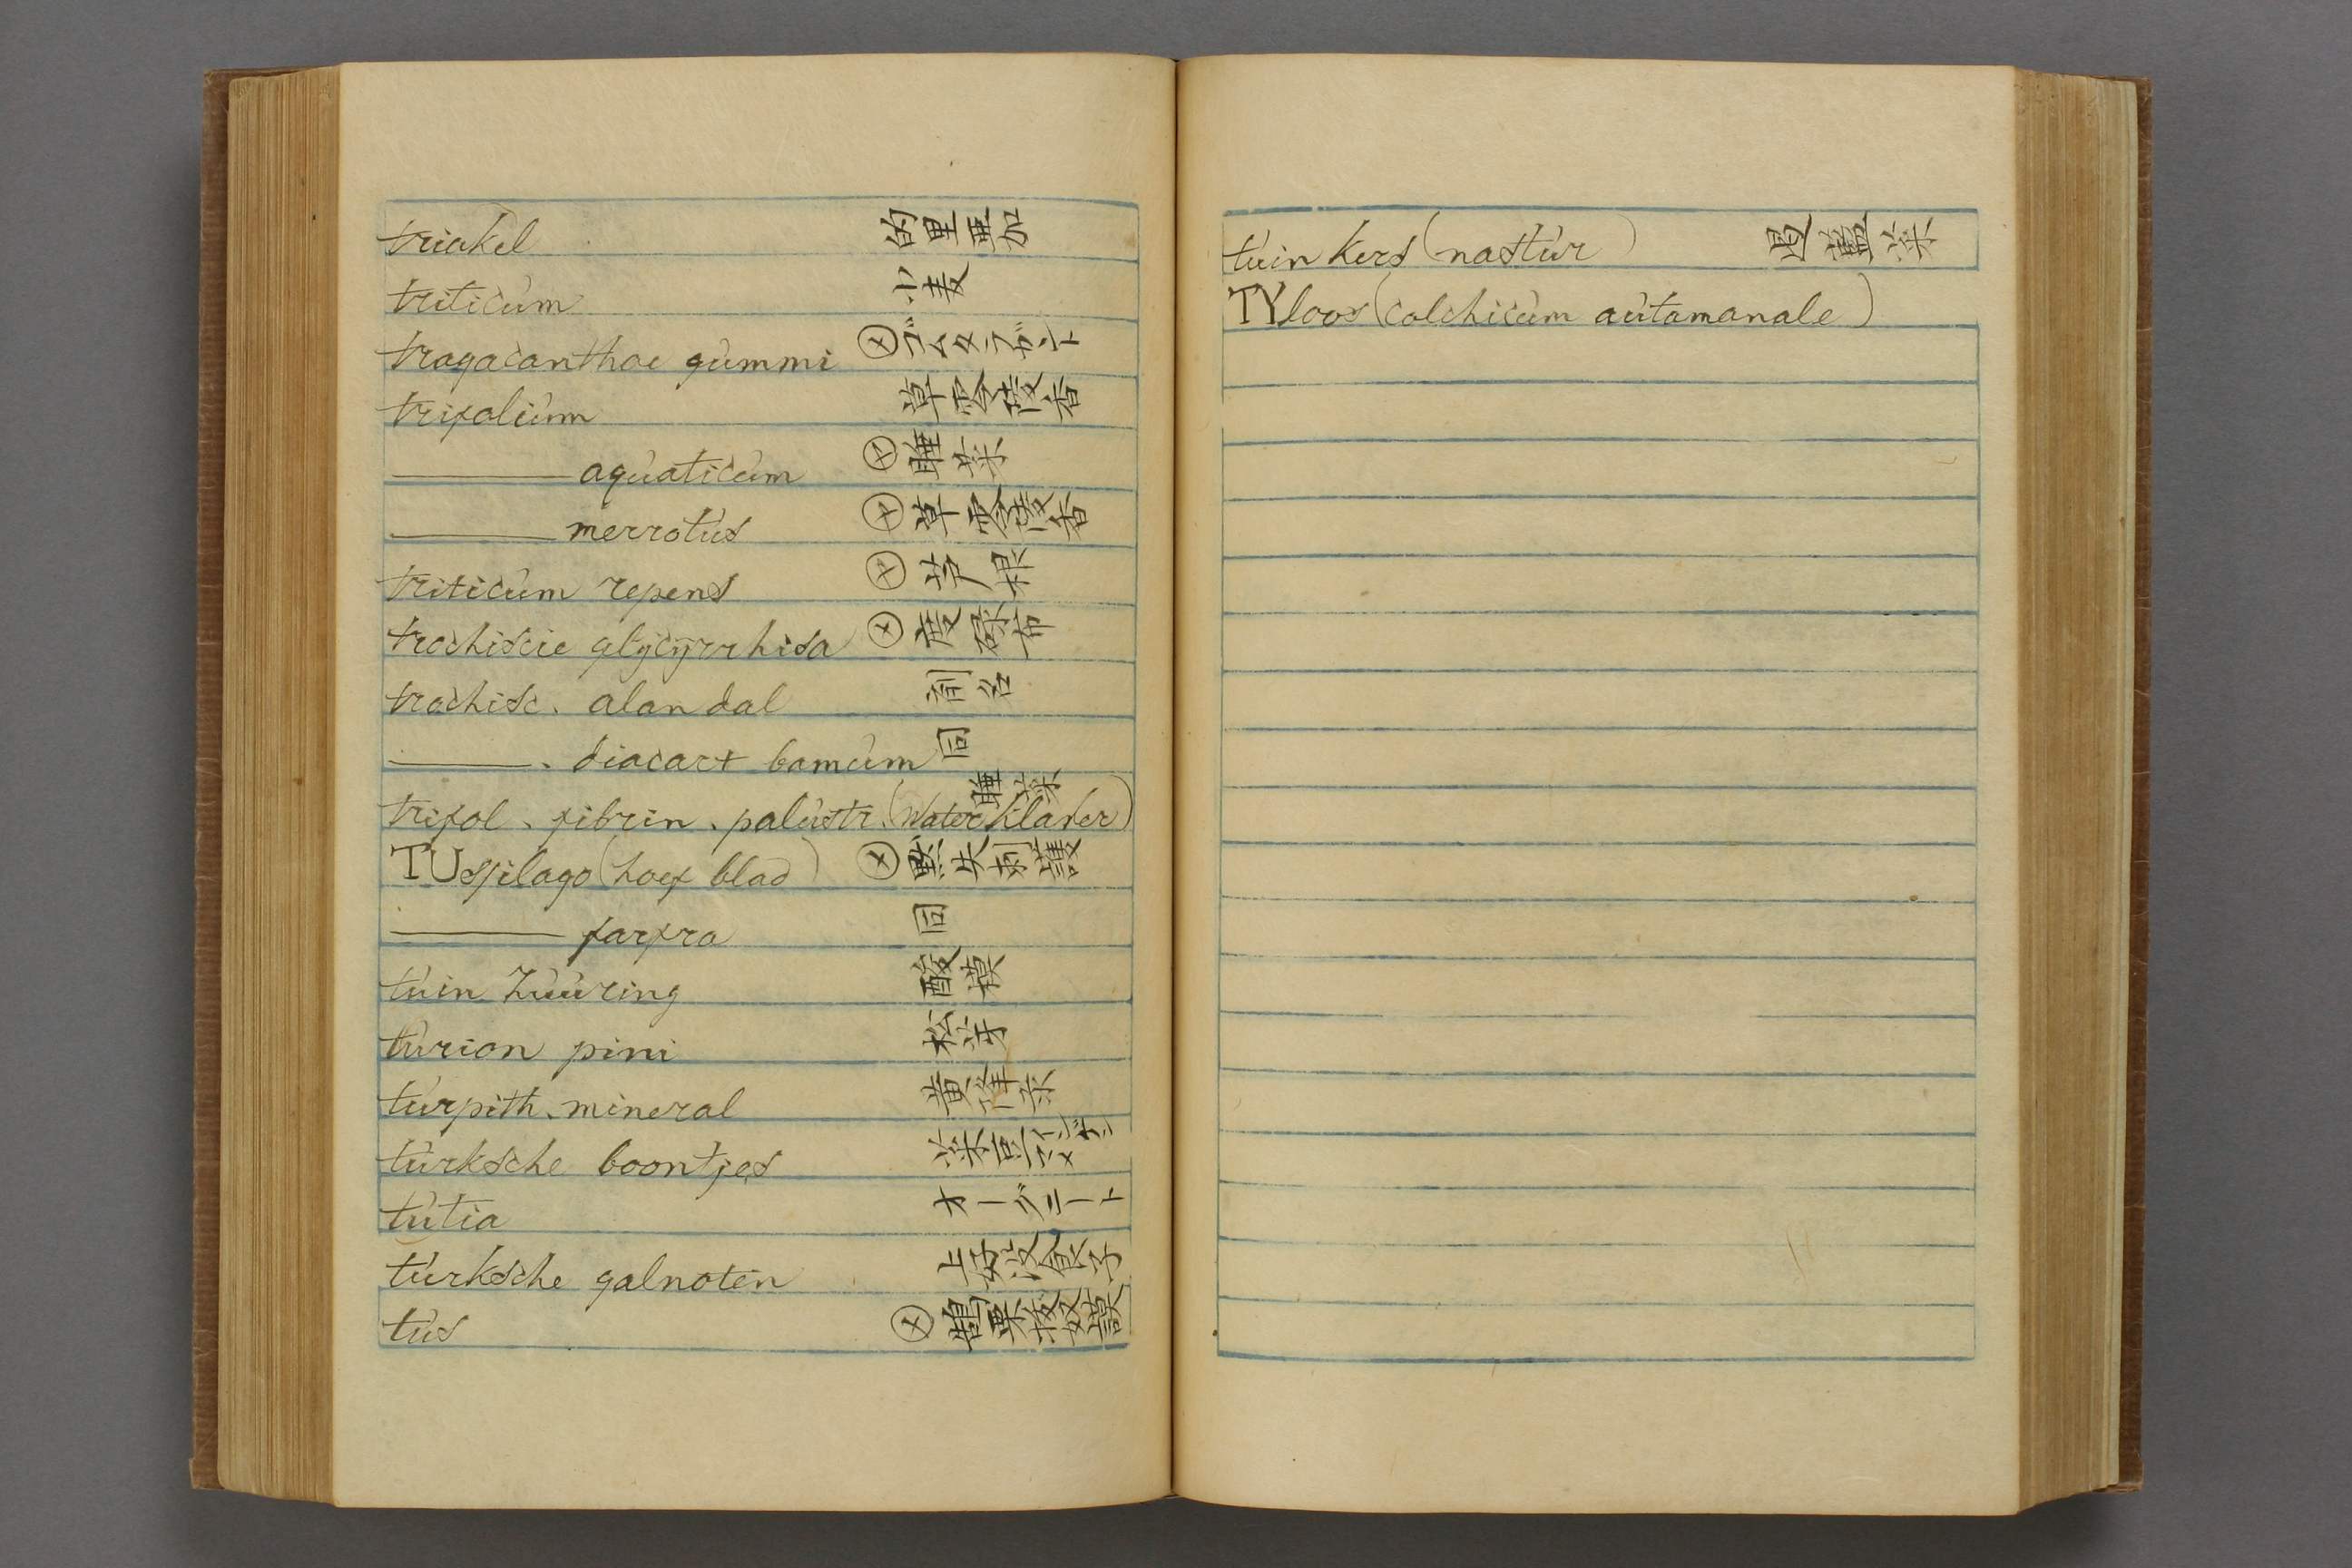 triakel 的里亜加
triticùm 小麦
tragacanthae gùmmi ゴムタラガント
trifoliùm 草零陵香
aqùaticùm 睡菜
merrotùs 草零陵香
triticùm repens 芦根
trochiscie glÿcÿrrhisa
trochisc. alandal 剤名
diacart bamcùm 同
trifol. fibrin. palùstr. (water klaver) 睡菜
TUssilago (hoef blad)
farfra 同
tùin zùùring 酸模
tùrion pini 松芽
tùrpith. mineral 黄降汞
tùrksche boontjes
tùtia オーグニート
tùrksche galnoten 上好没食子
tùs
tùin kers (nastùr)
TYloos (colchicùm aùtamanale)